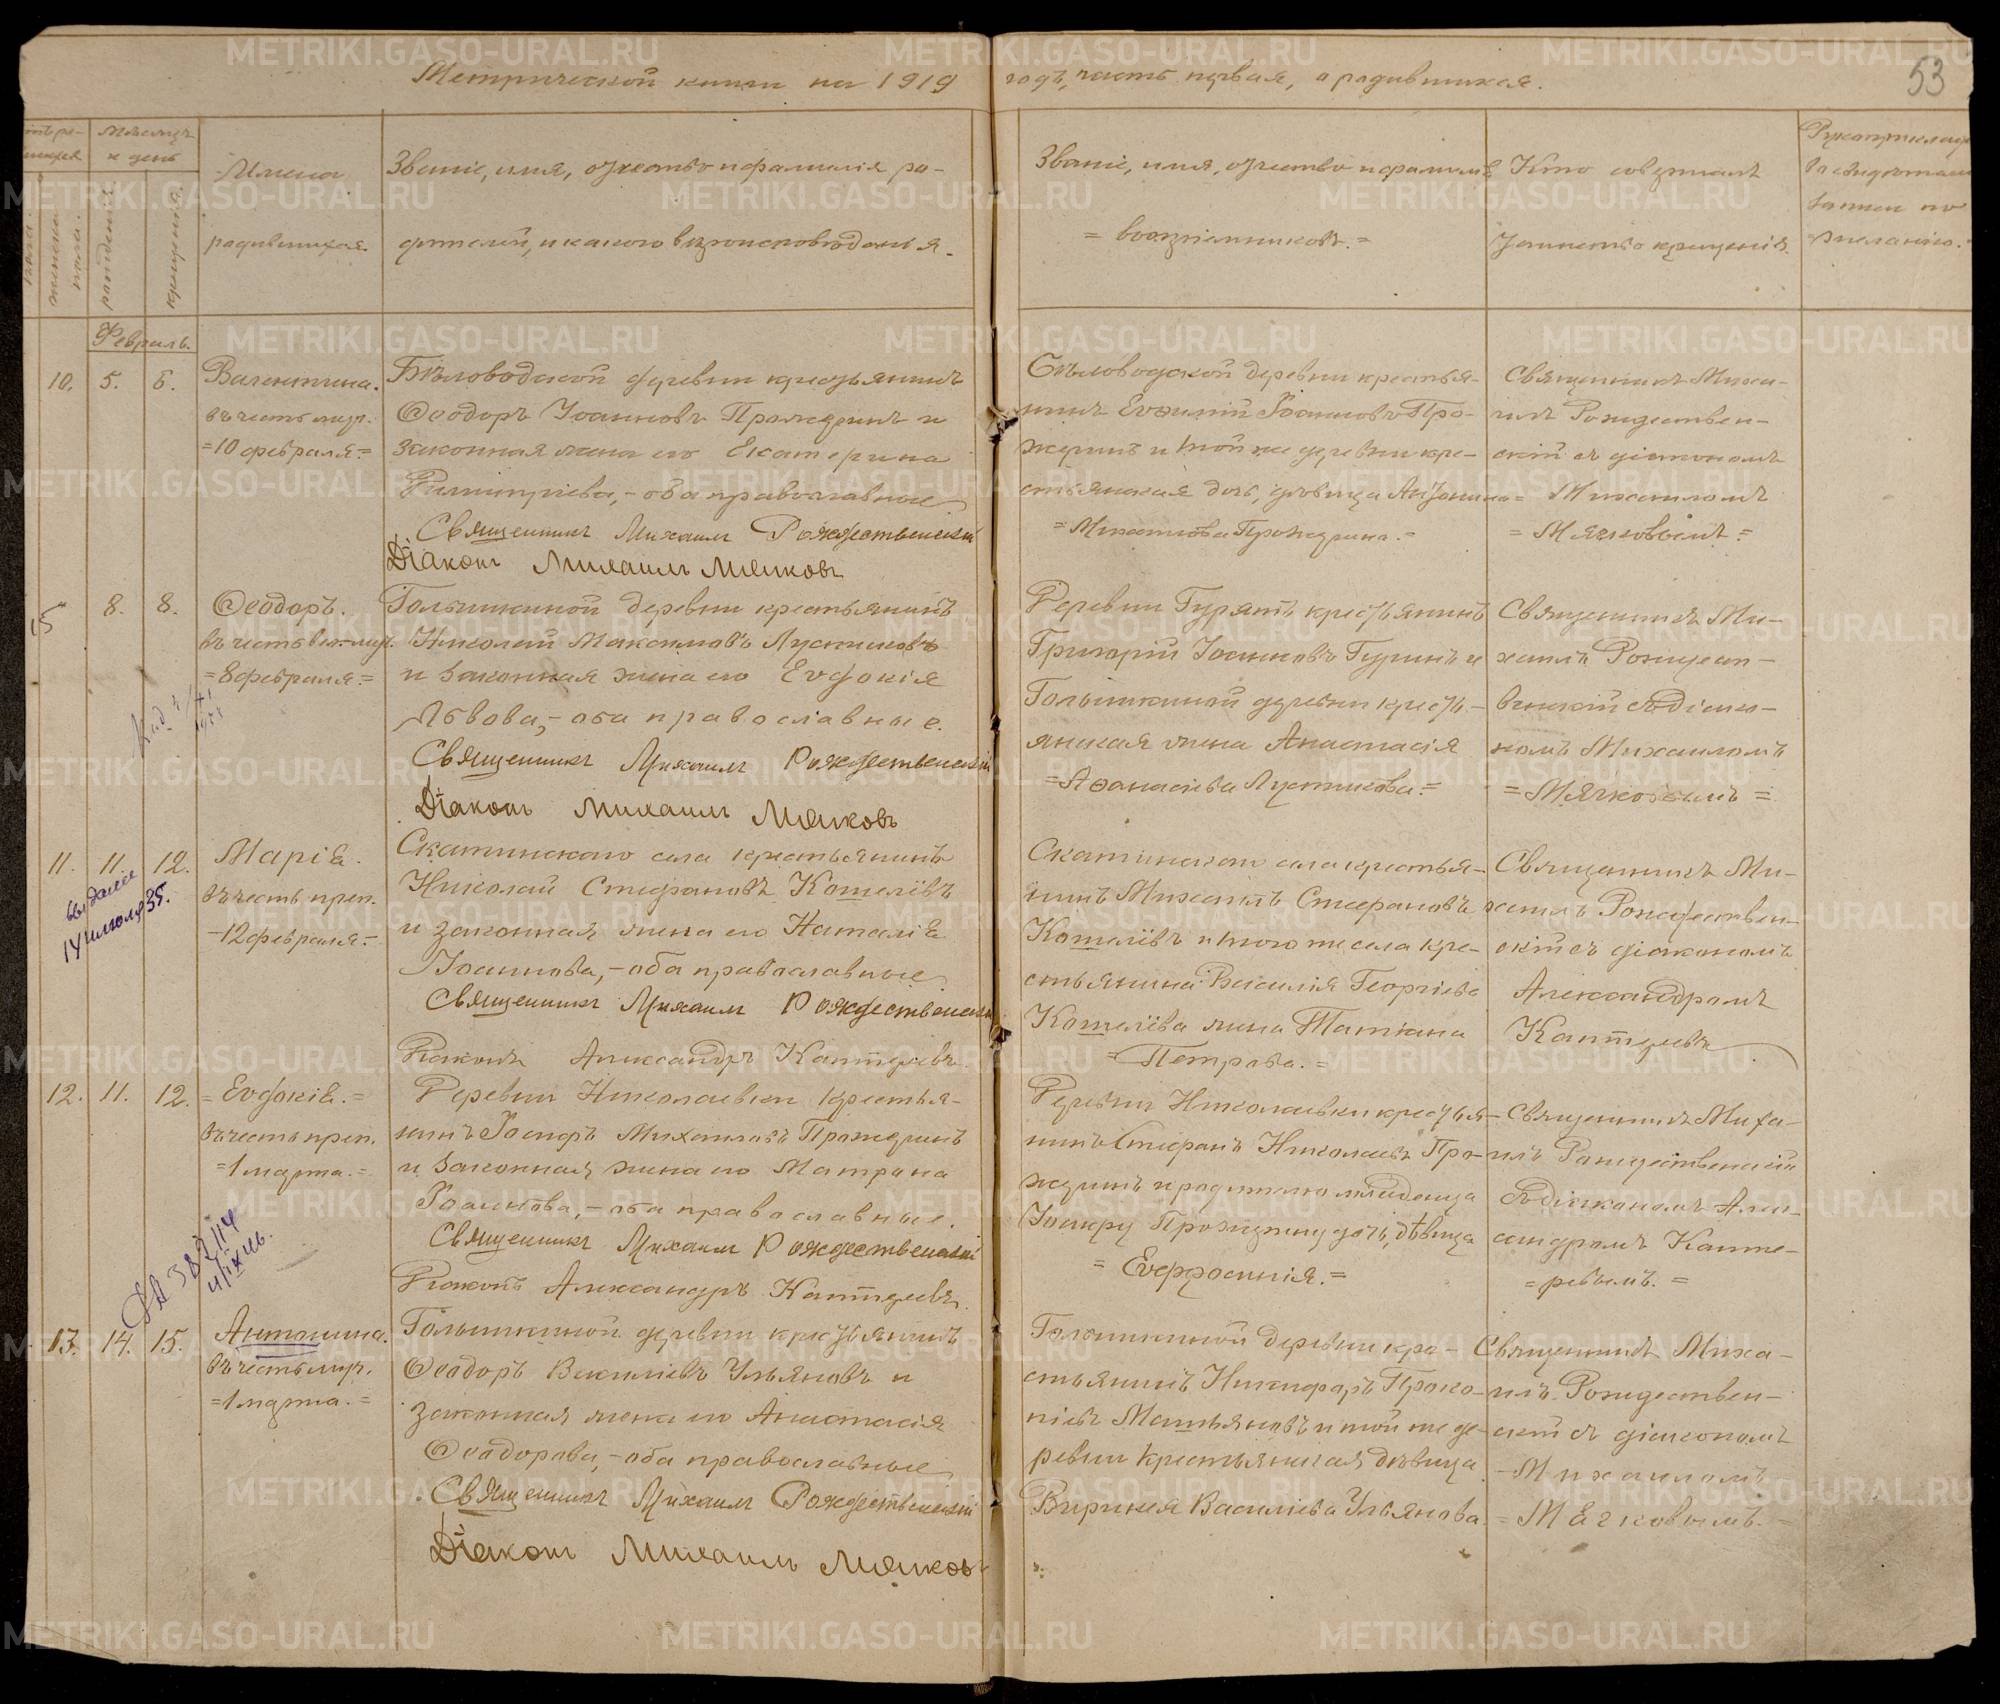 Метрической книги на 1919 годъ, часть первая, о родившихся.
53
Мѣсяцъ
и день
женска
пола.
рожденія
крещенія.
Имена
родившихся.
Званіе, имя, отчество и фамилія ро-
дителей, и какого вѣроисповѣданія.
Званіе, имя, отчество и фамилія
= воспріемниковъ. =
Кто совершалъ
таинство крещенія.
Рукоприклад
записи по
желанію.
Февраль.
10. 5. 6.
Валентина.
въ честь муч.
=10 февраля.=
Бѣловодской деревни крестьянинъ
Ѳеодоръ Іоанновъ Прожеринъ и
законная жена его Екатерина
Димитріева, - оба православные
Священникъ Михаилъ Рождественскій
Діаконъ Михаилъ Мягковъ
Бѣловодской деревни крестья-
нинъ Евѳимій Іоанновъ Про-
жеринъ и той же деревни кре-
стьянская дочь, дѣвица Антонина
= Михаилова Прожерина. =
Священникъ Миха-
илъ Рождествен-
скій съ діакономъ
= Михаиломъ
= Мягковымъ. =
15 8. 8.
Ѳеодоръ.
въ честь вел.-муч.
=8 февраля.=
Голышкиной деревни крестьянинъ
Николай Максимовъ Лустиковъ
и законная жена его Евдокія
Львова, - оба православные.
Священникъ Михаилъ Рождественскій
Діаконъ Михаилъ Мягковъ
Деревни Гурятъ крестьянинъ
Григорій Іоанновъ Гуринъ и
Голышкиной деревни кресть-
янская жена Анастасія
=Аѳанасіева Лустикова.=
Священникъ Ми-
хаилъ Рождест-
венскій съ діако-
номъ Михаиломъ
= Мягковымъ =
11. 11. 12.
выдано
14 июля 35.
Марія.
въ честь преп.
-12 февраля.-
Скатинскаго села крестьянинъ
Николай Стефановъ Кошелевъ
и законная жена его Наталія
Іоаннова, - оба православные
Священникъ Михаилъ Рождественскій
Діаконъ Александръ Каптеревъ.
Скатинскаго села крестья-
нинъ Михаилъ Стефановъ
Кошелевъ и того же села кре-
стьянина Василія Георгіева
Кошелева жена Татіана
= Петрова. =
Священникъ Ми-
хаилъ Рождествен-
скій съ діакономъ
Александромъ
Каптеревы
12. 11. 12.
= Евдокія. =
въ честь преп.
=1 марта.=
Деревни Николаевки крестья-
нинъ Іосифъ Михаиловъ Прожеринъ
и законная жена его Матрона
Іоаннова, - оба православные.
Священникъ Михаилъ Рождественскій
Діаконъ Александръ Каптеревъ.
Деревни Николаевки крестья-
нинъ Стефанъ Николаевъ Про-
жеринъ и родителю младенца
Іосифу Прожерину дочь, дѣвица
= Евфросинія. =
Священникъ Миха-
илъ Рождественскій
съ діакономъ Алек-
сандромъ Капте-
= ревымъ. =
13. 14. 15.
Антонина.
въ честь муч.
=1 марта.=
Голышкиной деревни крестьянинъ
Ѳеодоръ Василіевъ Ульяновъ и
законная жена его Анастасія
Ѳеодорова, - оба православные
Священникъ Михаилъ Рождественскій
Діаконъ Михаилъ Мягковъ
Голышкиной деревни кре-
стьянинъ Никифоръ Проко-
піевъ Машьяновъ и той же де-
ревни крестьянская дѣвица
Виринея Василіева Ульянова.
Священникъ Миха-
илъ Рождествен-
скій съ діакономъ
- Михаиломъ
= Мягковымъ. =